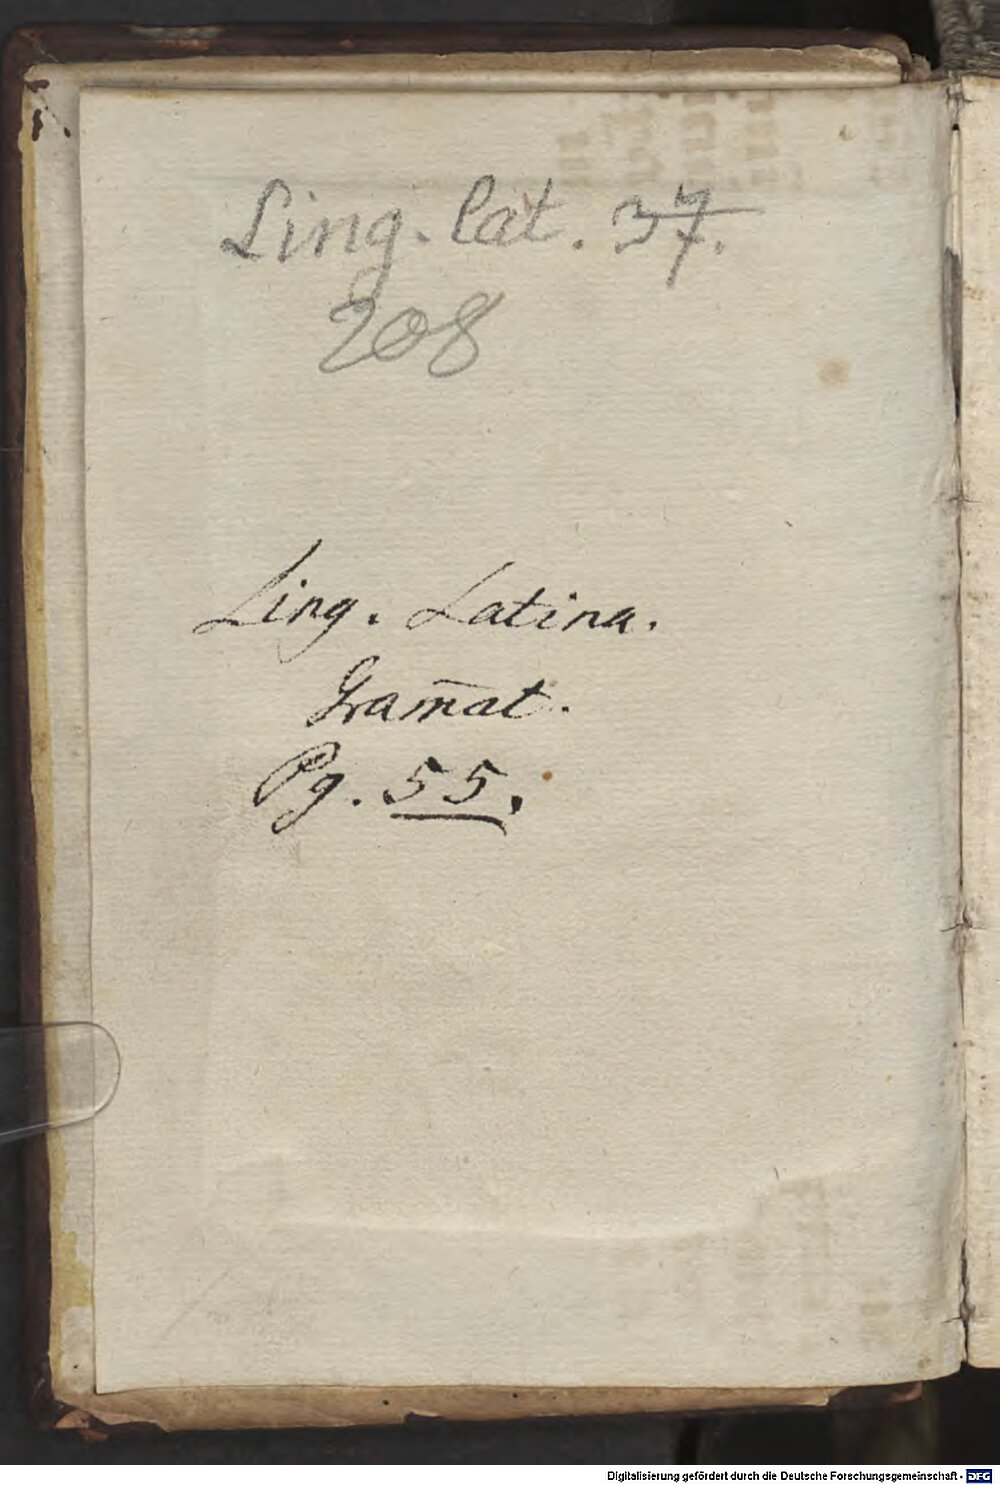 Ling. lat. 37.
208
Ling. Latina.
Gram̄at.
Pg. 55.
Digitalisierung gefördert durch die Deutsche Forschungsgemeinschaft - DFG